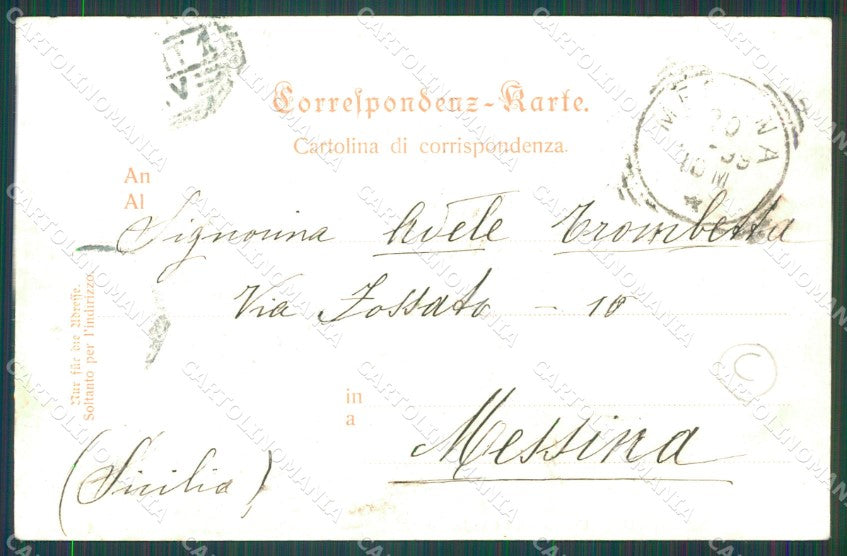 Correspondenz-Karte.
Cartolina di corrispondenza.
An
Al
Signorina Adele Trombetta
Via Fossato - 10
in
a
Messina
(Sicilia)
Nur für die Adresse.
Soltanto per l'indirizzo.
MESSINA
10 M
CARTOLINOMANIA